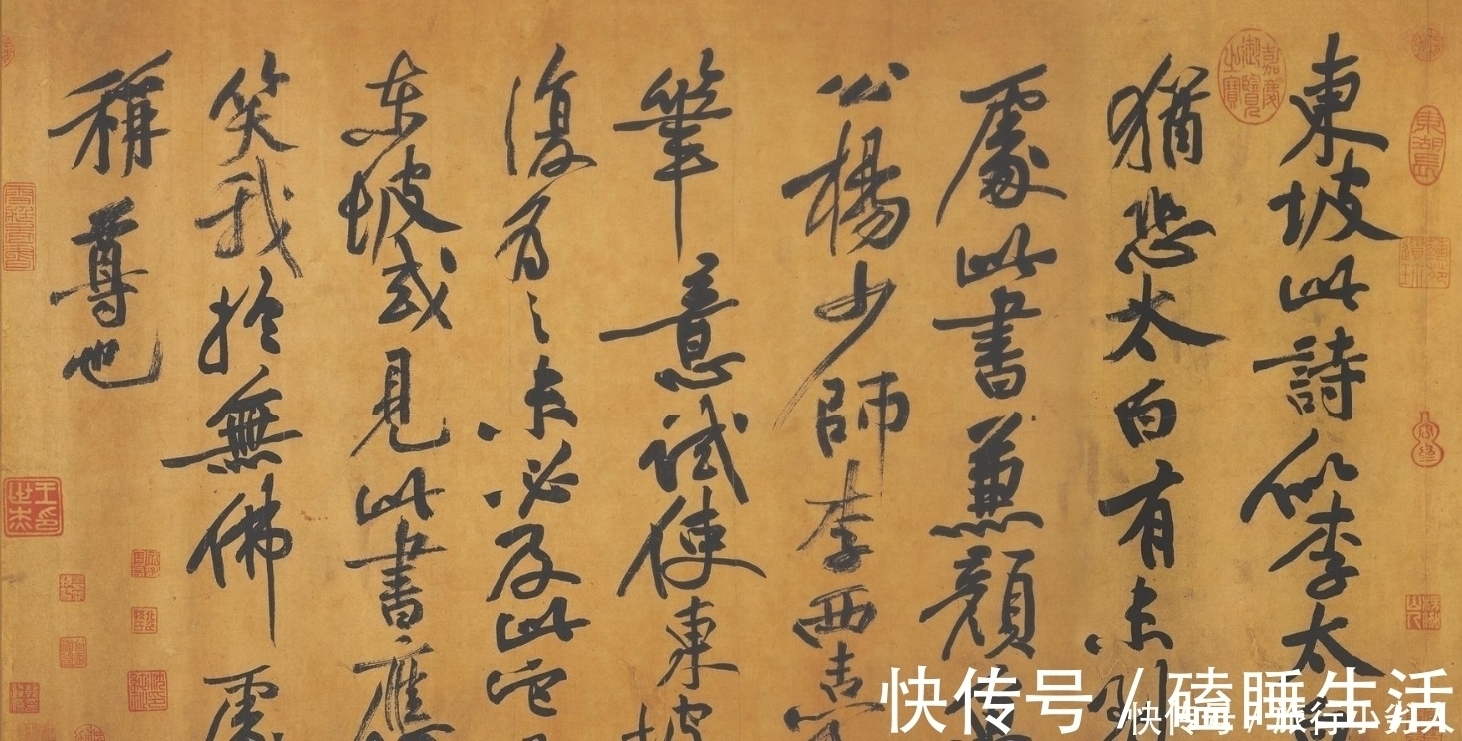 東坡此詩似李太
猶恐太白有未到
處此書兼顏
公楊少師李西臺
筆意試使東坡
復為之未必及此它
東坡或見此書應
笑我於無佛處
稱尊也
嘉慶御覽之寶
東湖長
快传号 / 磕睡生活